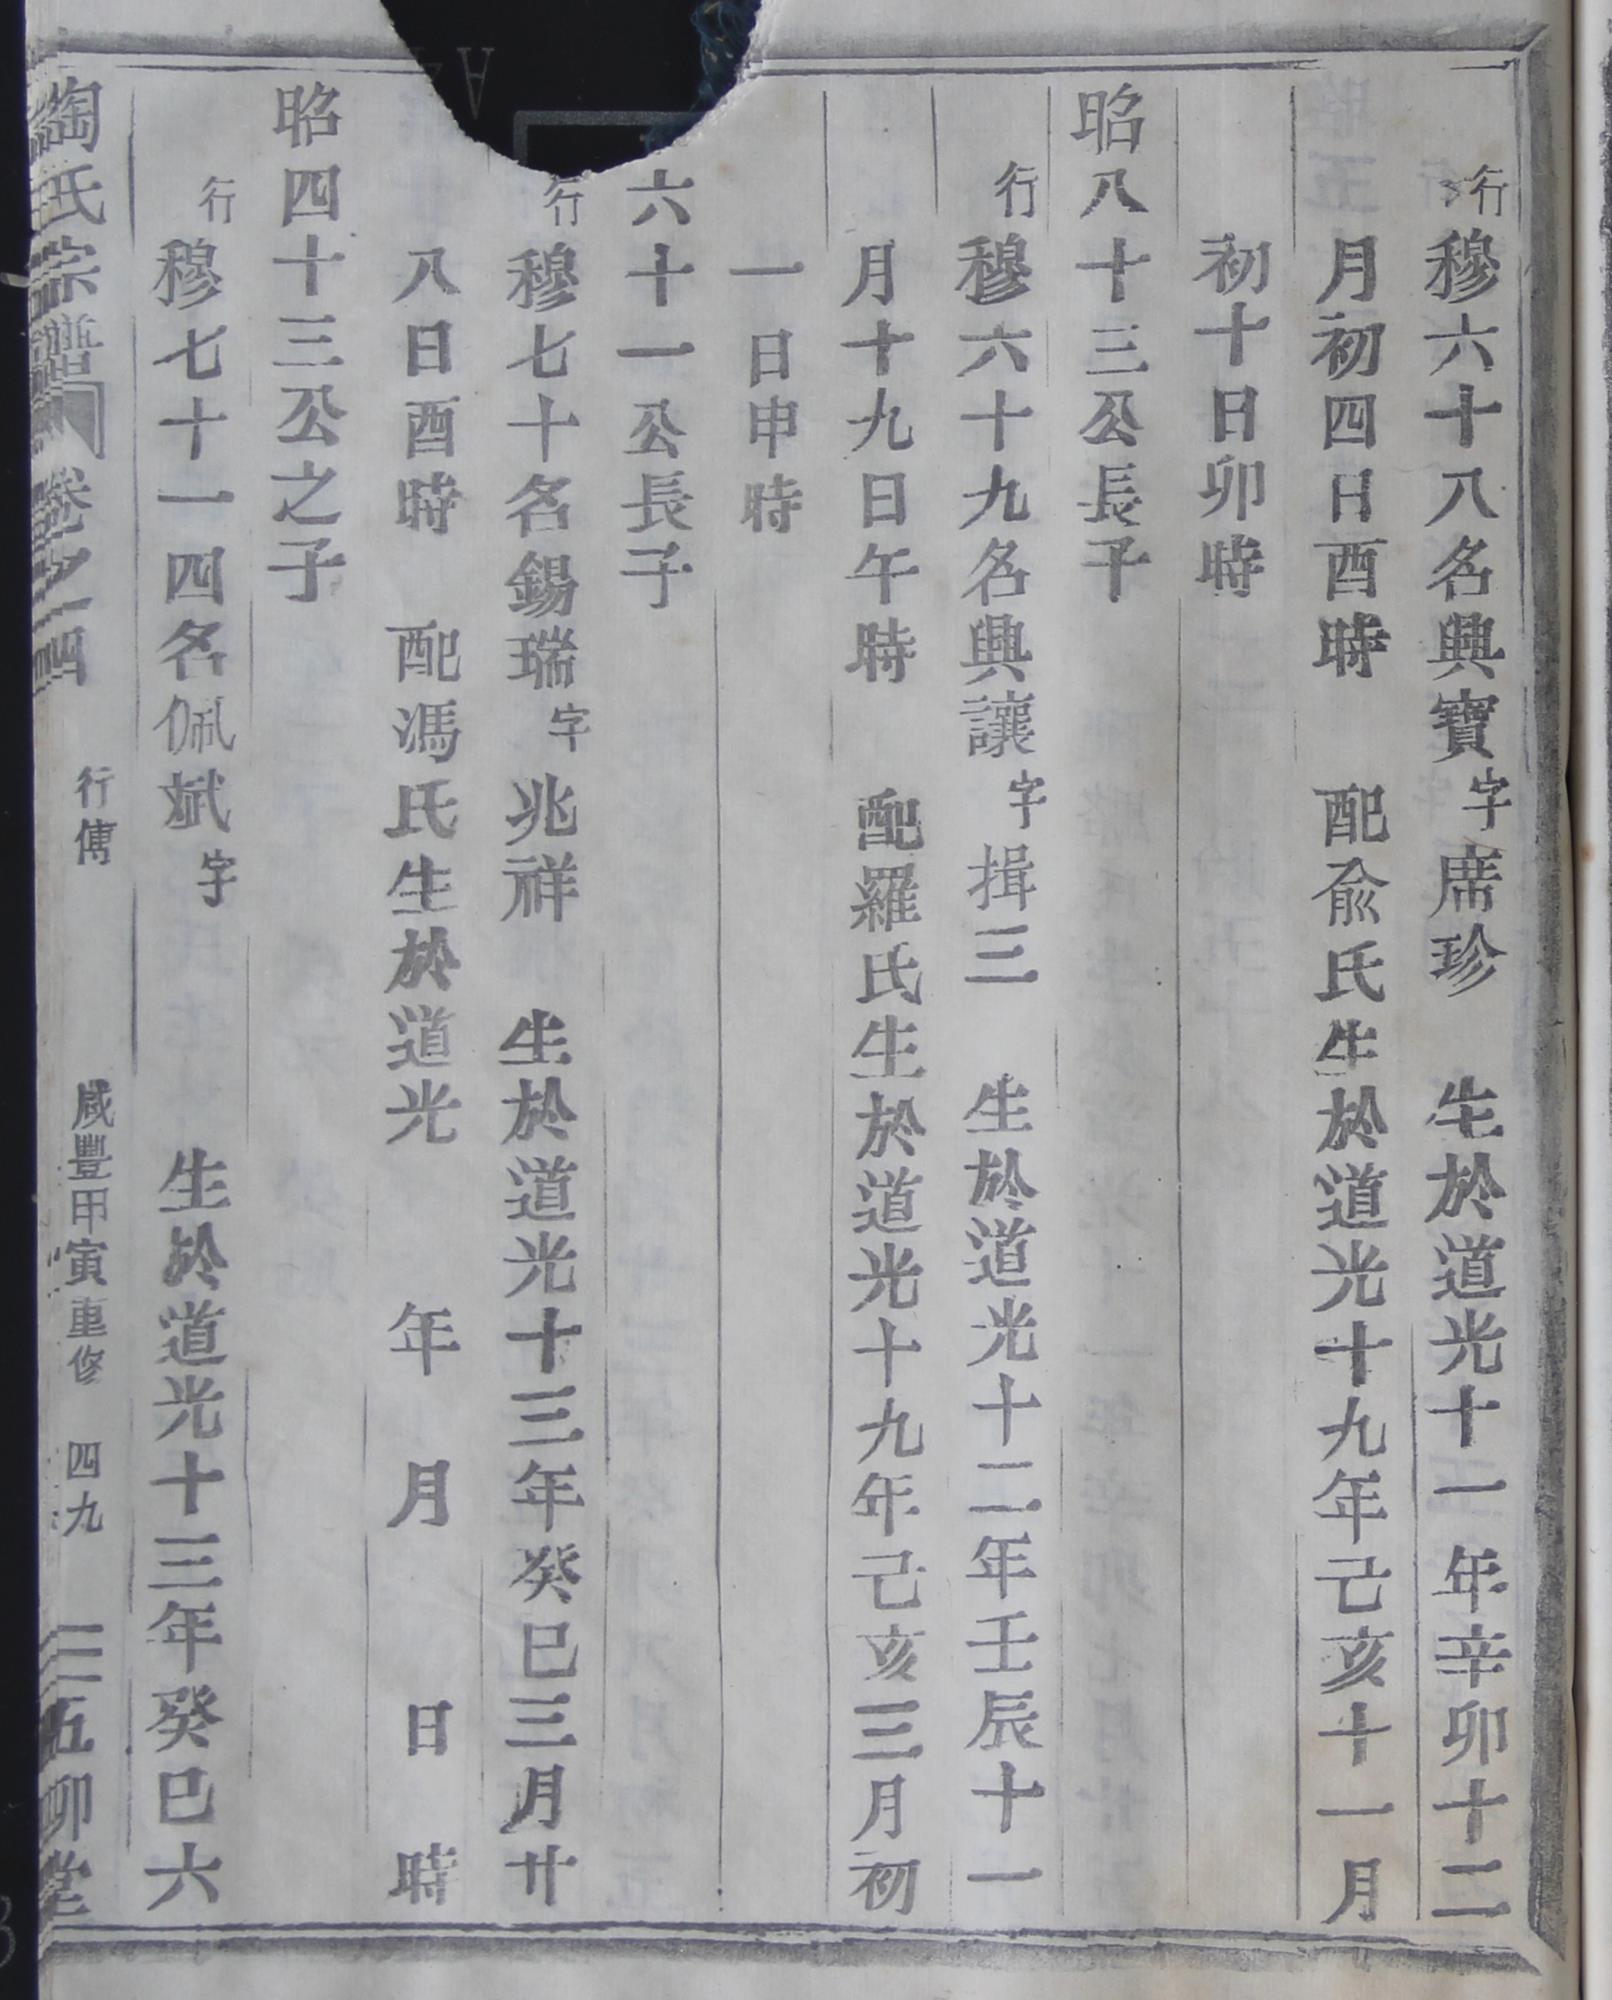 行穆六十八名興寶字席珍　生於道光十一年辛卯十二
月初四日酉時　配俞氏生於道光十九年己亥十一月
初十日卯時
昭八十三公長子
行穆六十九名興讓字揖三　生於道光十二年壬辰十一
月十九日午時　配羅氏生於道光十九年己亥三月初
一日申時
六十一公長子
行穆七十名錫瑞字兆祥　生於道光十三年癸巳三月廿
八日酉時　配馮氏生於道光　年　月　日　時
昭四十三公之子
行穆七十一四名佩斌字　生於道光十三年癸巳六
陶氏宗譜　卷之四　行傳　咸豐甲寅重修　四九　五柳堂